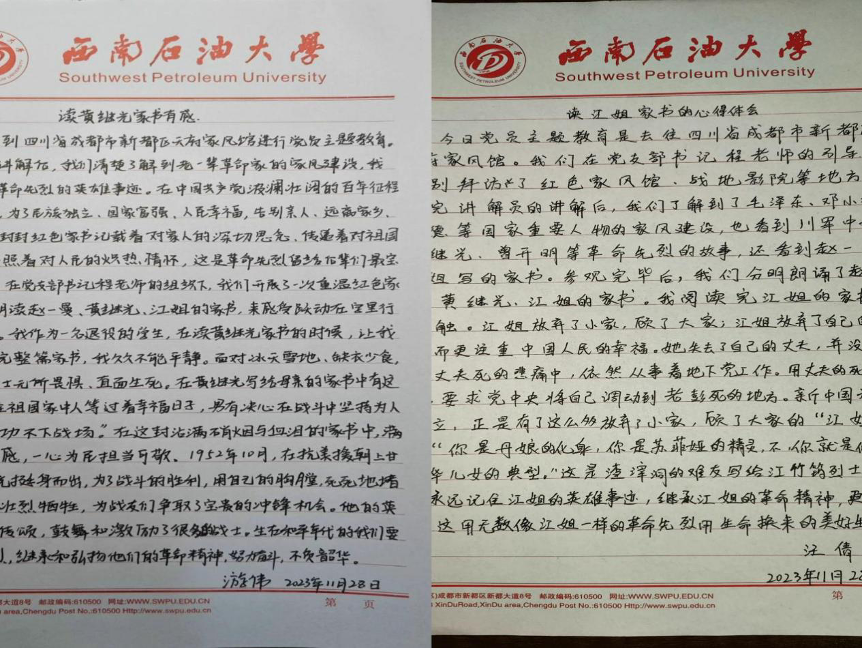 西南石油大学
Southwest Petroleum University
读黄继光家书有感.
到四川省成都市新都区天府家风馆进行党员主题教育。
斗解怡，我们清楚了解到老一辈革命家的家风建设，我
革命先烈的英雄事迹。在中国共产党波澜壮阔的百年征程
，为了民族独立、国家富强、人民幸福，告别亲人、远离家乡、
封封红色家书记载着对家人的深切思念、传递着对祖国
照着对人民的炽热情怀，这是革命先烈留给后辈们最宝
在党支部书记程老师的组织下，我们开展了一次重温红色家
朗读赵一曼、黄继光、江姐的家书，来感受跃动在字里行
。我作为一名退役的学生，在读黄继光家书的时候，让我
完整篇家书，我久久不能平静。面对冰天雪地、缺衣少食，
士无所畏惧、直面生死。在黄继光写给母亲的家书中有这
在祖国家中人等过着幸福日子，男有决心在战斗中坚持为人
功不下战场。”在这封沾满硝烟与血泪的家书中，满
感，一心为民担当可敬。1952年10月，在抗美援朝上甘
光挺身而出，为了战斗的胜利，用自己的胸膛，死死地堵
壮烈牺牲，为战友们争取了宝贵的冲锋机会。他的英
传颂，鼓舞和激励了很多战士。生在和平年代的我们要
，继承和弘扬他们的革命精神，努力奋斗，不负韶华。
游伟 2023年11月28日
大道8号 邮政编码:610500 网址:WWW.SWPU.EDU.CN
area,Chengdu Post No.:610500 Http://www.swpu.edu.cn
第 页
西南石油大学
Southwest Petroleum University
读江姐家书的心得体会
今日党员主题教育是去往四川省成都市新都
家风馆。我们在党支部书记程老师的引导
别拜访了红色家风馆、战地影院等地方
完讲解员的讲解后，我们了解到了毛泽东、邓小
恩等国家重要人物的家风建设，也看到川军中
继光、曾开明等革命先烈的故事，还看到赵一
姐写的家书。参观完毕后，我们分明朗诵了赵
黄继光、江姐的家书。我阅读完江姐的家书
触。江姐放弃了小家，顾了大家；江姐放弃了自己的
而更注重中国人民的幸福。她失去了自己的丈夫，并没
丈夫死的悲痛中，依然从事着地下党工作。用丈夫的死
要求党中央将自己调动到老彭死的地方。新中国
立，正是有了这么些放弃了小家，顾了大家的“江姐
“你是丹娘的化身，你是苏菲娅的精灵，不，你就是
华儿女的典型。”这是渣滓洞的难友写给江竹筠烈士
永远记住江姐的英雄事迹，继承江姐的革命精神，更
这用无数像江姐一样的革命先烈用生命换来的美好生
汪倩
2023年11月28
)成都市新都区新都大道8号 邮政编码:610500 网址:WWW.SWPU.EDU.CN
XinDuRoad,XinDu area,Chengdu Post No.:610500 Http://www.swpu.edu.cn
第